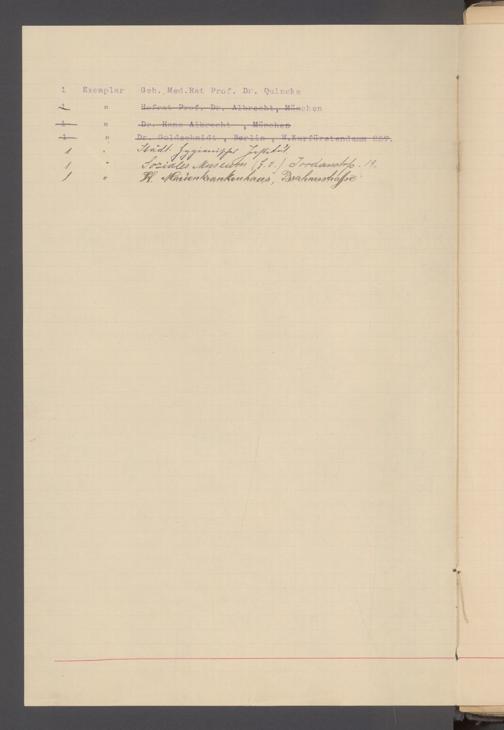 1 Exemplar Geh. Med.Rat Prof. Dr. Quincke
1 " Hofrat Prof. Dr. Albrecht, München
1 " Dr. Hans Albrecht , München
1 " Dr. Goldschmidt , Berlin , W.Kurfürstendamm
1 " Städt. Hygienisches Institut
1 " Soziales Museum Jordanstr. 19.
1 " Marienkrankenhaus, Brahmsstraße